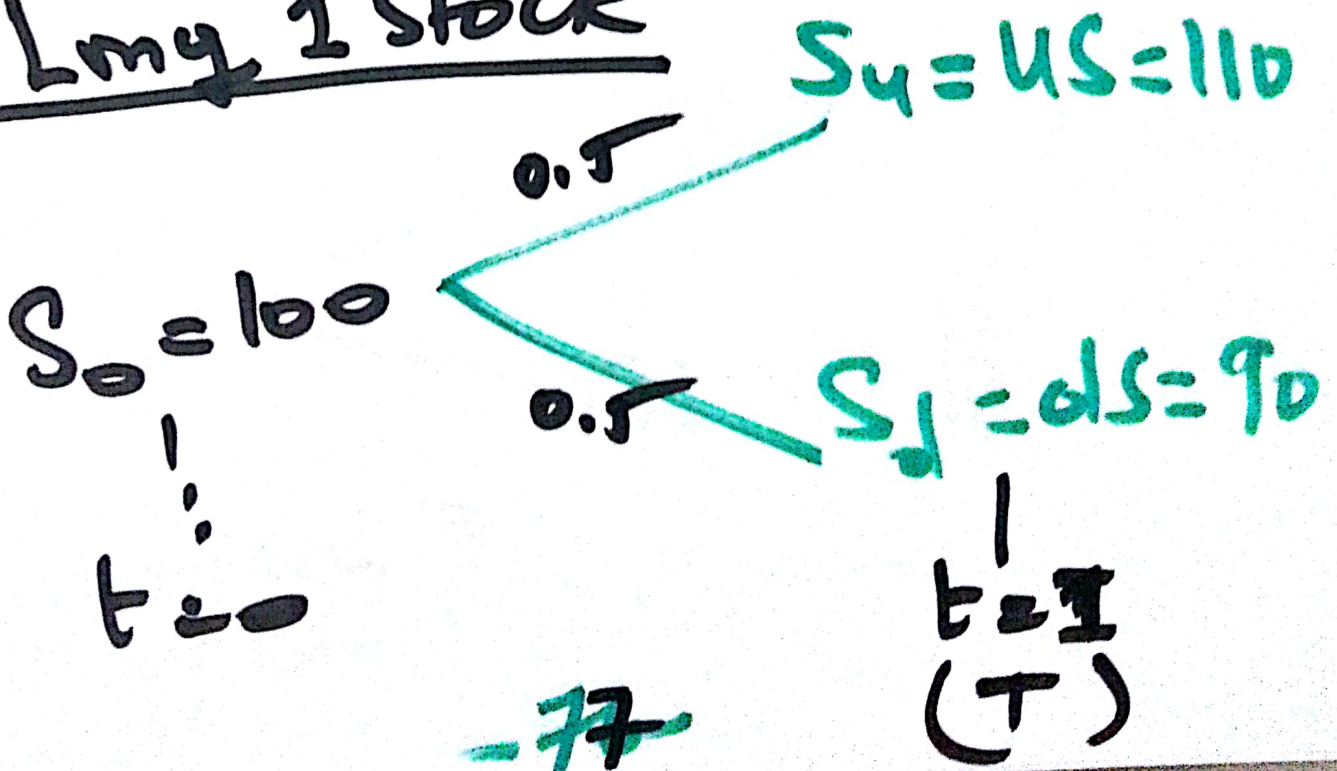 Long 1 Stock
Su = US = 110
0.5
S0 = 100
0.5
Sd = dS = 90
t = 0
t = 1
(T)